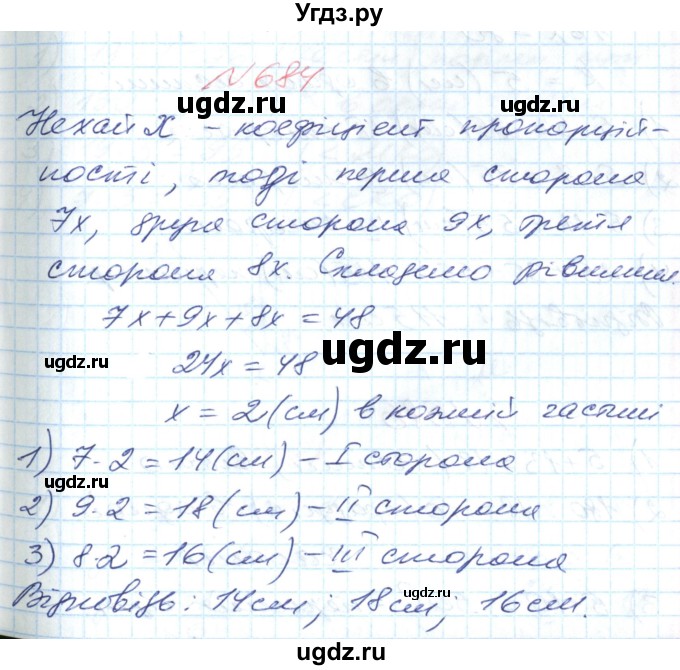 Угдз.ру
№684
ugdz.ru
Нехай X – коефіцієнт пропорцій-
ugdz.ru
ності, тоді перша сторона
7x, друга сторона 9x, третя
сторона 8x. Складемо рівняння.
7x+9x+8x=48
ugdz.ru
ugdz.ru
24x=48
x=2(см) в кожній частині
1) 7·2=14(см) – I сторона
ugdz.ru
2) 9·2=18(см) – II сторона
3) 8·2=16(см) – III сторона
ugdz.ru
Відповідь: 14см; 18см; 16см.
ugdz.ru
Угдз.ру